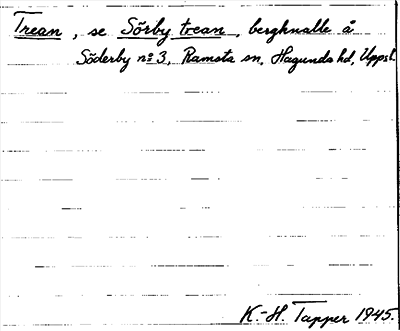 Trean, se Sörby trean, bergknalle å
Söderby nº 3, Ramsta sn, Hagunda hd, Uppsl.
K.-H. Tapper 1945.